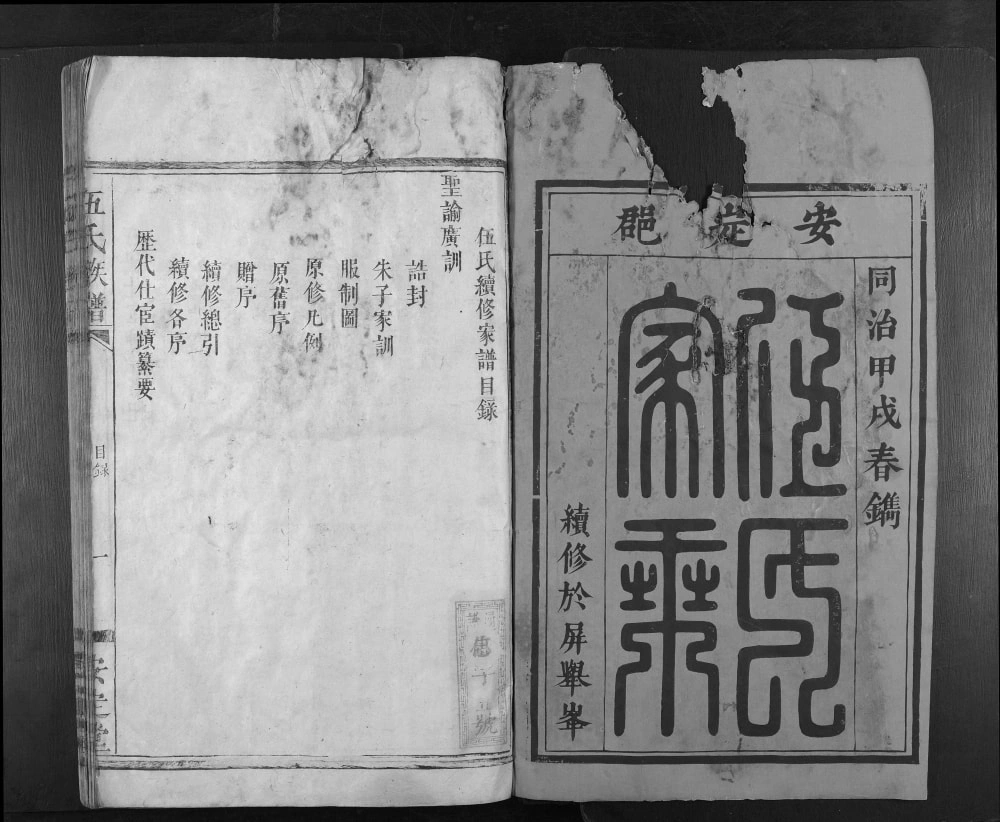 安定郡
同治甲戌春鐫
伍氏
家乘
續修於屏舉峯
伍氏續修家譜目錄
聖諭廣訓
誥封
朱子家訓
服制圖
原修凡例
原舊序
贈序
續修總引
續修各序
歷代仕宦蹟纂要
伍氏族譜
目錄
一
安定堂
號